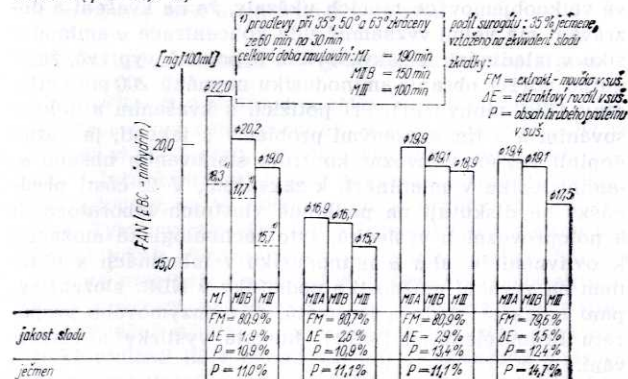 1) prodlevy při 35°, 50° a 63° zkráceny
ze 60 min na 30 min
celková doba rmutování: MI = 190 min
MIIB = 150 min
MIII = 100 min
podíl surogátu: 35% ječmene,
vztaženo na ekvivalent sladu
zkratky:
FM = extrakt - moučka v suš.
ΔE = extraktový rozdíl v suš.
P = obsah hrubého proteinu
v suš.
[mg/100ml]
FAN (EBC - ninhydrin)
20,0
15,0
ø22,0
ø20,2
ø19,0
18,3
17,7
15,7 1)
ø16,9
ø16,7
ø15,7
ø19,9
ø19,1
ø18,9
ø19,4
ø19,1
ø17,5
MI MIIB MIII
MIIA MIIB MIII
MIIA MIIB MIII
MIIA MIIB MIII
jakost sladu
FM = 80,9%
ΔE = 1,9%
P = 10,9%
FM = 80,7%
ΔE = 2,6%
P = 10,9%
FM = 80,9%
ΔE = 2,9%
P = 13,4%
FM = 79,6%
ΔE = 4,5%
P = 12,4%
ječmen
P = 11,0%
P = 11,1%
P = 11,1%
P = 14,7%